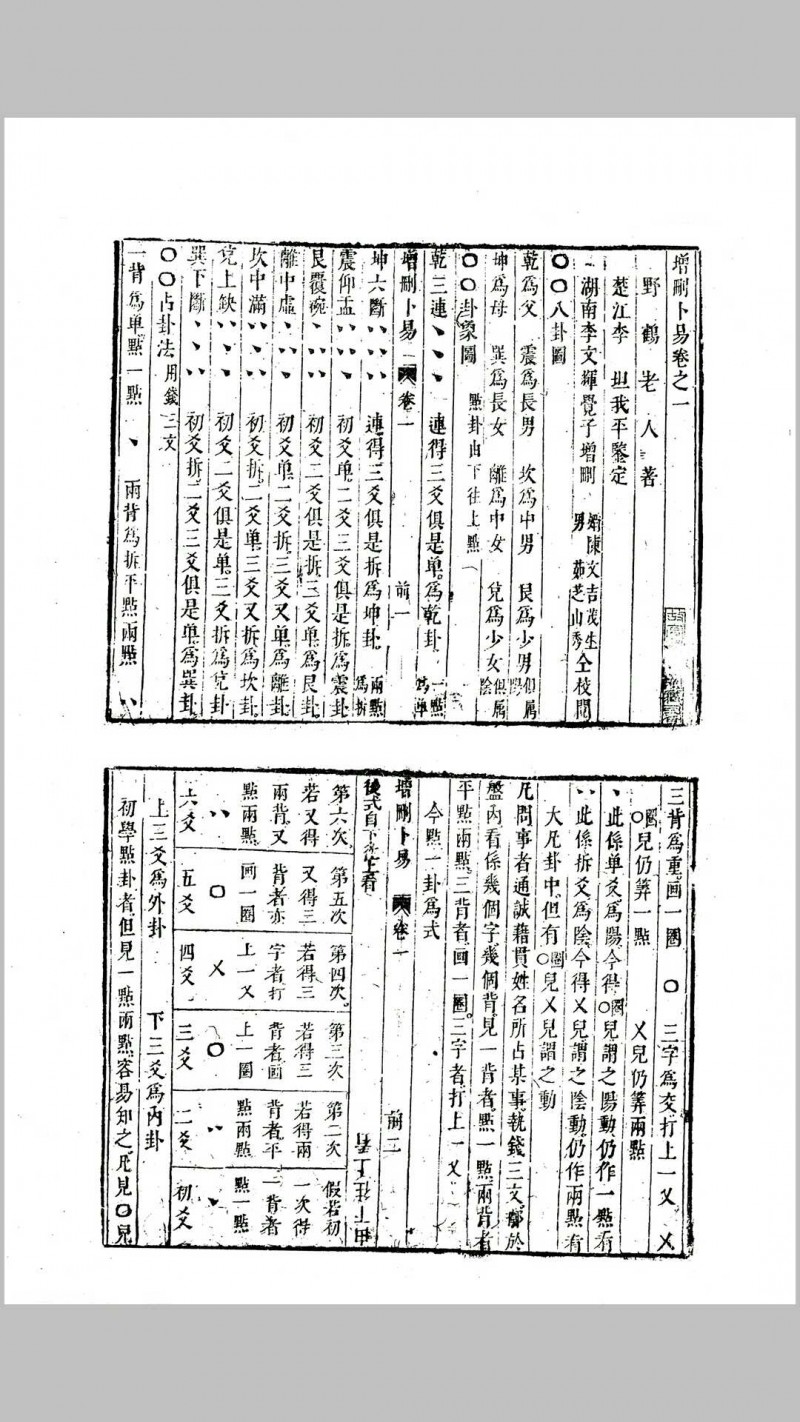 增刪卜易卷之一
野鶴老人著
楚江李 坦我平鑒定
湖南李文輝覺子增刪 婿陳文吉茂生 男 茹芝山秀 仝校閱
〇〇八卦圖
乾爲父 震爲長男 坎爲中男 艮爲少男 俱属陽
坤爲母 巽爲長女 離爲中女 兌爲少女 俱属陰
〇〇卦象圖 點卦由下往上點
乾三連 、、、 連得三爻俱是单爲乾卦 一點爲單
增刪卜易 卷一 前一
坤六斷 、、、、、、 連得三爻俱是拆爲坤卦 兩點爲拆
震仰盂 、、、、、 初爻单二爻三爻俱是拆爲震卦
艮覆碗 、、、、、 初爻二爻俱是拆三爻单爲艮卦
離中虛 、、、、 初爻单二爻拆三爻又单爲離卦
坎中滿 、、、、、 初爻拆二爻单三爻又拆爲坎卦
兌上缺 、、、、 初爻二爻俱是单三爻拆爲兌卦
巽下斷 、、、、 初爻拆二爻三爻俱是单爲巽卦
〇〇占卦法 用錢三文
一背爲单點一點 、 兩背爲拆平點兩點 、、
三背爲重画一圈 〇 三字爲交打上一乂 乂
〇圈兒仍筭一點 乂兒仍筭兩點
、此係单爻爲陽今得〇圈兒謂之陽動仍作一點看
、、此係拆爻爲陰今得乂兒謂之陰動仍作兩點看
大凡卦中但有〇圈兒乂兒謂之動
凡問事者通誠藉貫姓名所占某事執錢三文擲於
盤内看係幾個字幾個背見一背者點一點兩背者
平點兩點三背者画一圈三字者打上一乂
今點一卦爲式
增刪卜易 卷一 前二
後式自下
由下往上看
假若初一次得一背者點一點 、 初爻
第二次若得兩背者平點兩點 、、 二爻
第三次若得三背者画上一圈 〇 三爻
第四次若得三字者打上一乂 乂 四爻
第五次又得三背者亦画一圈 〇 五爻
第六次若又得兩背又點兩點 、、 六爻
上三爻爲外卦 下三爻爲内卦
初學點卦者但見一點兩點容易知之凡見〇兒